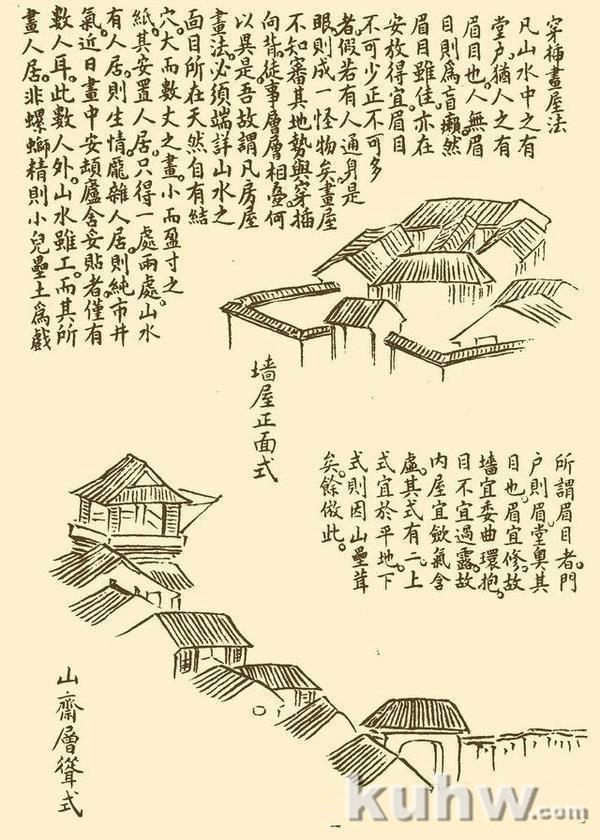 穿揷畫屋法
凡山水中之有
堂户猶人之有
眉目也。人無眉
目則爲盲癩。然
眉目雖佳亦在
安放得宜。眉目
不可少正不可多
者。假若有人通身是
眼則成一怪物矣。畫屋
不知審其地勢與穿插
向背。徒事層層相疊。何
以異是。吾故謂凡房屋
畫法。必須端詳山水之
面目所在。天然自有結
穴。大而數丈之畫。小而盈寸之
紙。其安置人居。只得一處兩處。山水
有人居。則生情。龐雜人居。則純市井
氣。近日畫中安頓廬舍妥貼者。僅有
數人耳。此數人外。山水雖工。而其所
畫人居。非螺螄精則小兒壘土爲戲
墻屋正面式
所謂眉目者。門
户則眉堂奧其
目也。眉宜修。故
墻宜委曲環抱。
目不宜過露。故
内屋宜斂氣含
虛。其式有二。上
式宜於平地。下
式則因山壘葺
矣。餘倣此。
山齋層聳式
kuhw.com